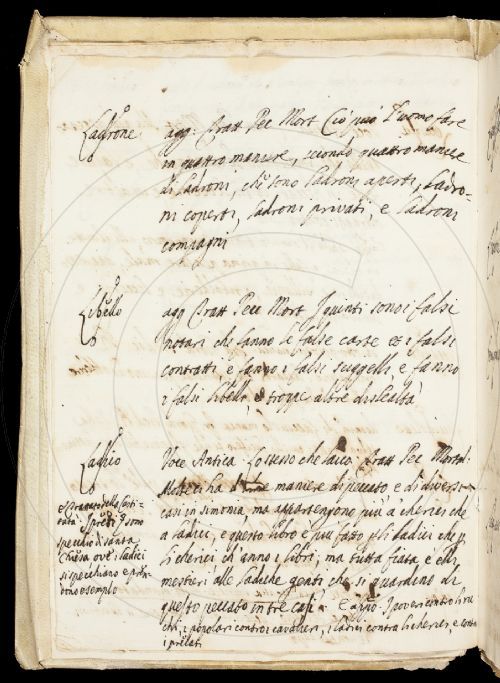 Ladrone agg. Tratt Pec Mort Ciò può l'uomo fare
in quattro maniere, secondo quattro maniere
di ladroni, che sono ladroni aperti, Ladro-
ni coperti, ladroni privati, e ladroni
compagni
Libello agg Tratt Pec Mort I quinti sono i falsi
notari che fanno le false carte et i falsi
contratti e fanno i falsi suggelli, e fanno
i falsi libelli, e troppe altre dislealtà
Laghio Voce Antica. Lo stesso che laico. Tratt Pec Mortal:
maniere di peccato, e di diversi
casi in simonia, ma appartengono più a cherici che
a ladici, e questo libro è più fatto pli ladici che p
li cherici ch'anno i libri; ma tutta fiata è elli
mestieri alle ladiche genti che si guardino di
questo peccato in tre casi. E appo: I poveri contro li ric
chi, i popolari contro i cavalieri, i ladici contra li cherici, e contro
i prelati
e Trattato della Casti-
tata. I preti sono
specchio di santa
Chiesa ov'è i ladici
si specchiano e pren-
dono esemplo